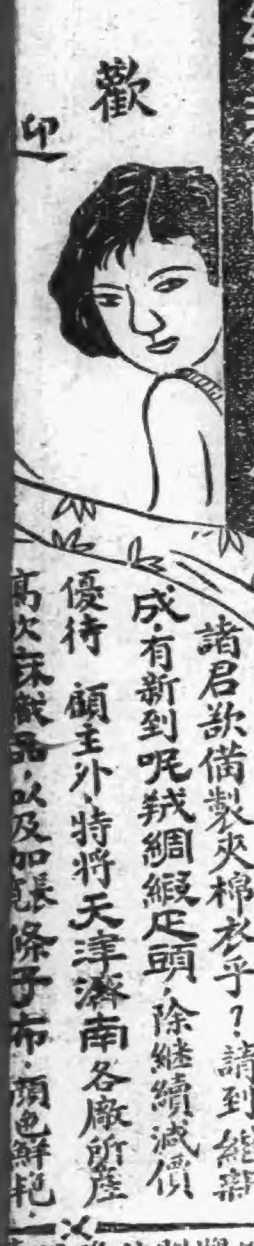 歡
印
諸君欲備製夾棉衣乎？請到
成，有新到呢羢綢緞疋頭，除繼續減價
優待 顧主外，特將天津濟南各廠所產
高次 品，以及加寬 條子布，顏色鮮艷，